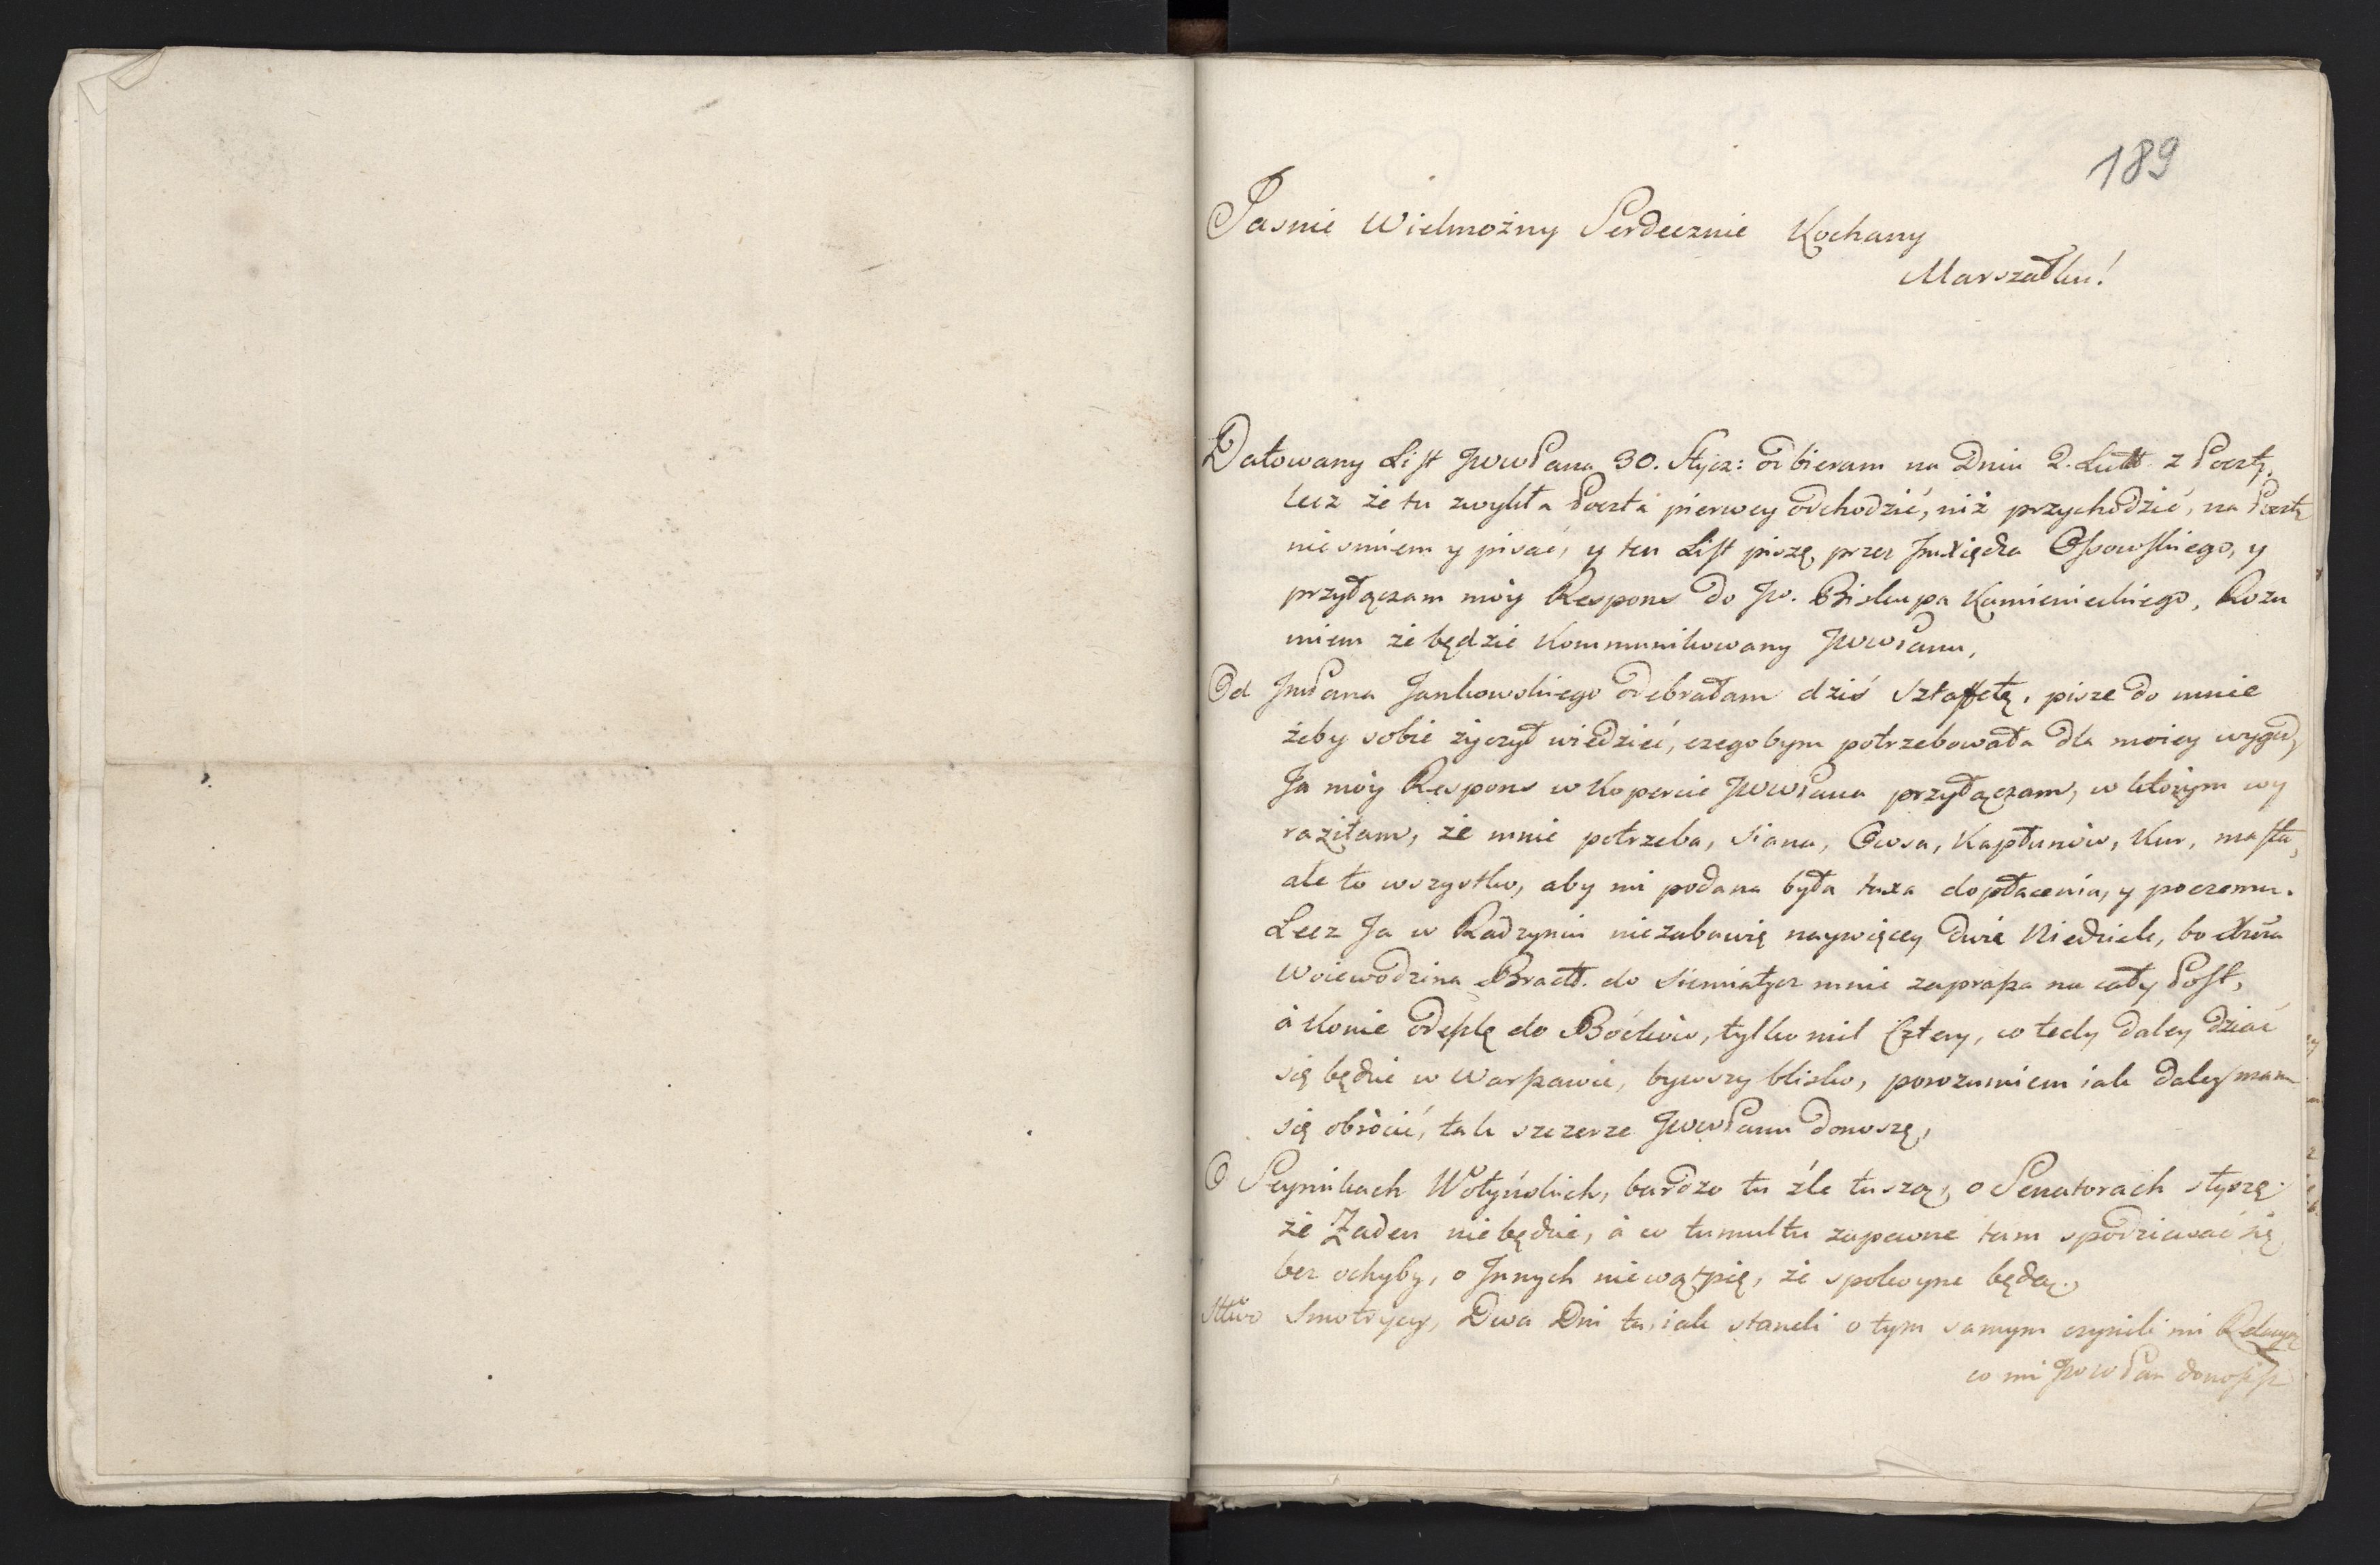 189
Jasnie Wielmożny Serdecznie Kochany
Marszałku!
Datowany List JwwPana 30. Stycz: odbieram na Dniu 2. Lutt. z Pocztą,
lecz że tu zwykła Poczta pierwey odchodzić, niż przychodzić, na Pocztę
nie smiem y pisać, y ten List piszę przez Jmxiędza Ossowskiego, y
przyłączam móy Respons do Jw. Biskupa Kamienieckiego, Rozu
miem że będzie kommunikowany JwwPanu,
Od JmPana Jankowskiego odebrałam dziś sztaffetę, pisze do mnie
żeby sobie życzył wiedzieć, czegobym potrzebowała dla moiey wygody,
Ja móy Respons w Kopercie JwwPana przyłączam, w którym wy
raziłam, że mnie potrzeba, siana, Owsa, Kapłunów, Kur, masła,
ale to wszystko, aby mi podana była taxa do płacenia, y poczemu.
Lecz Ja w Radzyniu niezabawię naywięcey dwie Niedziele, bo
Woiewodzina Bracł. do Siemiatycz mnie zaprasza na cały Post,
à konie odeszlę do Boćków, tylko mil Cztery, co tedy daley dziać
się będzie w Warszawie, bywszy blisko, porozumiem iak daley mam
się obrócić, tak szczerze JwwPanu donoszę,
O Seymikach Wołyńskich, bardzo tu źle tuszą, o Senatorach słyszę
że Żaden niebędzie, à co tumultu zapewne tam spodziewać się
bez ochyby, o Jnnych niewątpię, że spokoyne będą.
Smotryccy, Dwa Dni tu, iak staneli o tym samym czynili mi Relacyą
co mi JwwPan donosisz